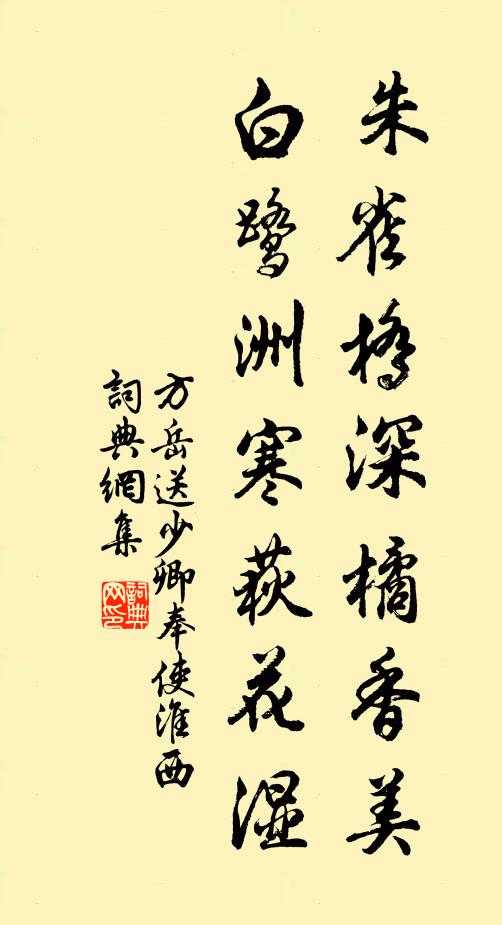 朱雀橋深橘香美
白鹭洲寒荻花濕
方岳送少卿奉使淮西
詞典網集
詞典
网印